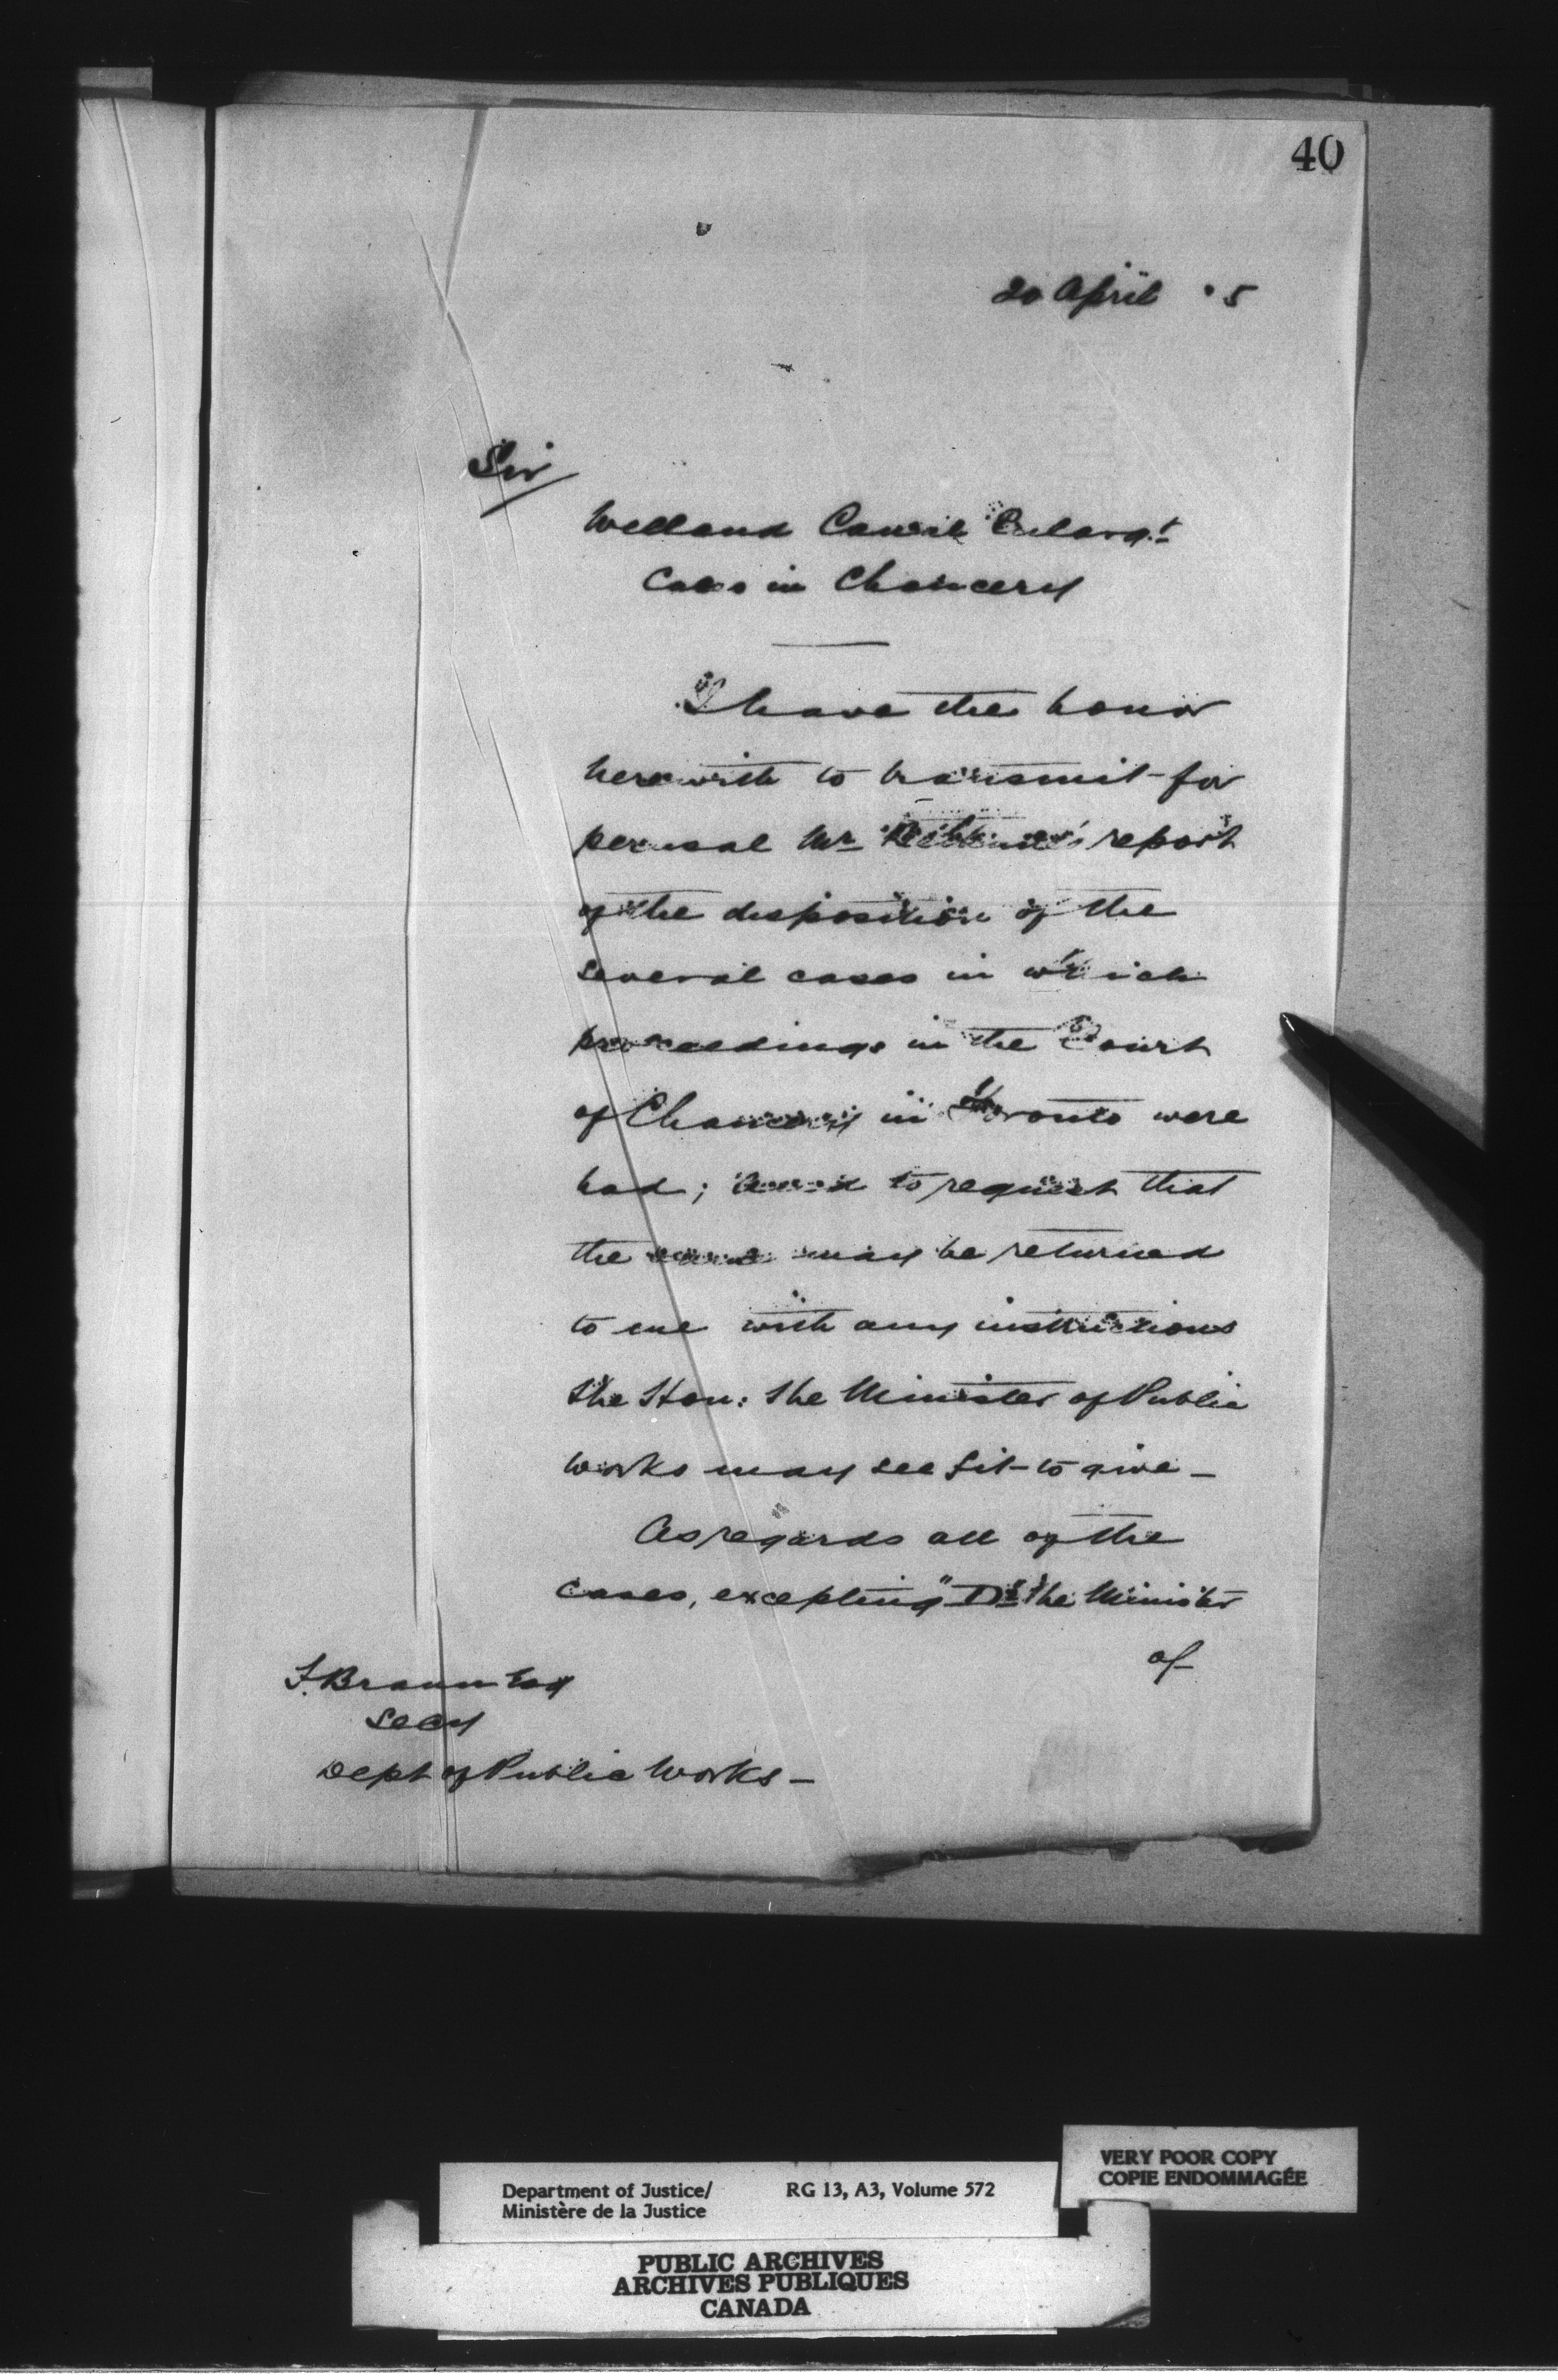 40
20 April 5
Sir
Welland Canal Enlarg.t
Cases in Chancery
I have the honor
herewith to transmit for
perusal Mr report
of the disposition of the
several cases in which
proceedings in the Court
of Chancery in Toronto were
had; and to request that
the same may be returned
to me with any instructions
the Hon: the Minister of Public
Works may see fit to give_
As regards all of the
cases, excepting the Minister
of
F. Braun Esq
Secy
Dept of Public Works_
VERY POOR COPY
COPIE ENDOMMAGÉE
Department of Justice/ RG 13, A3, Volume 572
Ministère de la Justice
PUBLIC ARCHIVES
ARCHIVES PUBLIQUES
CANADA